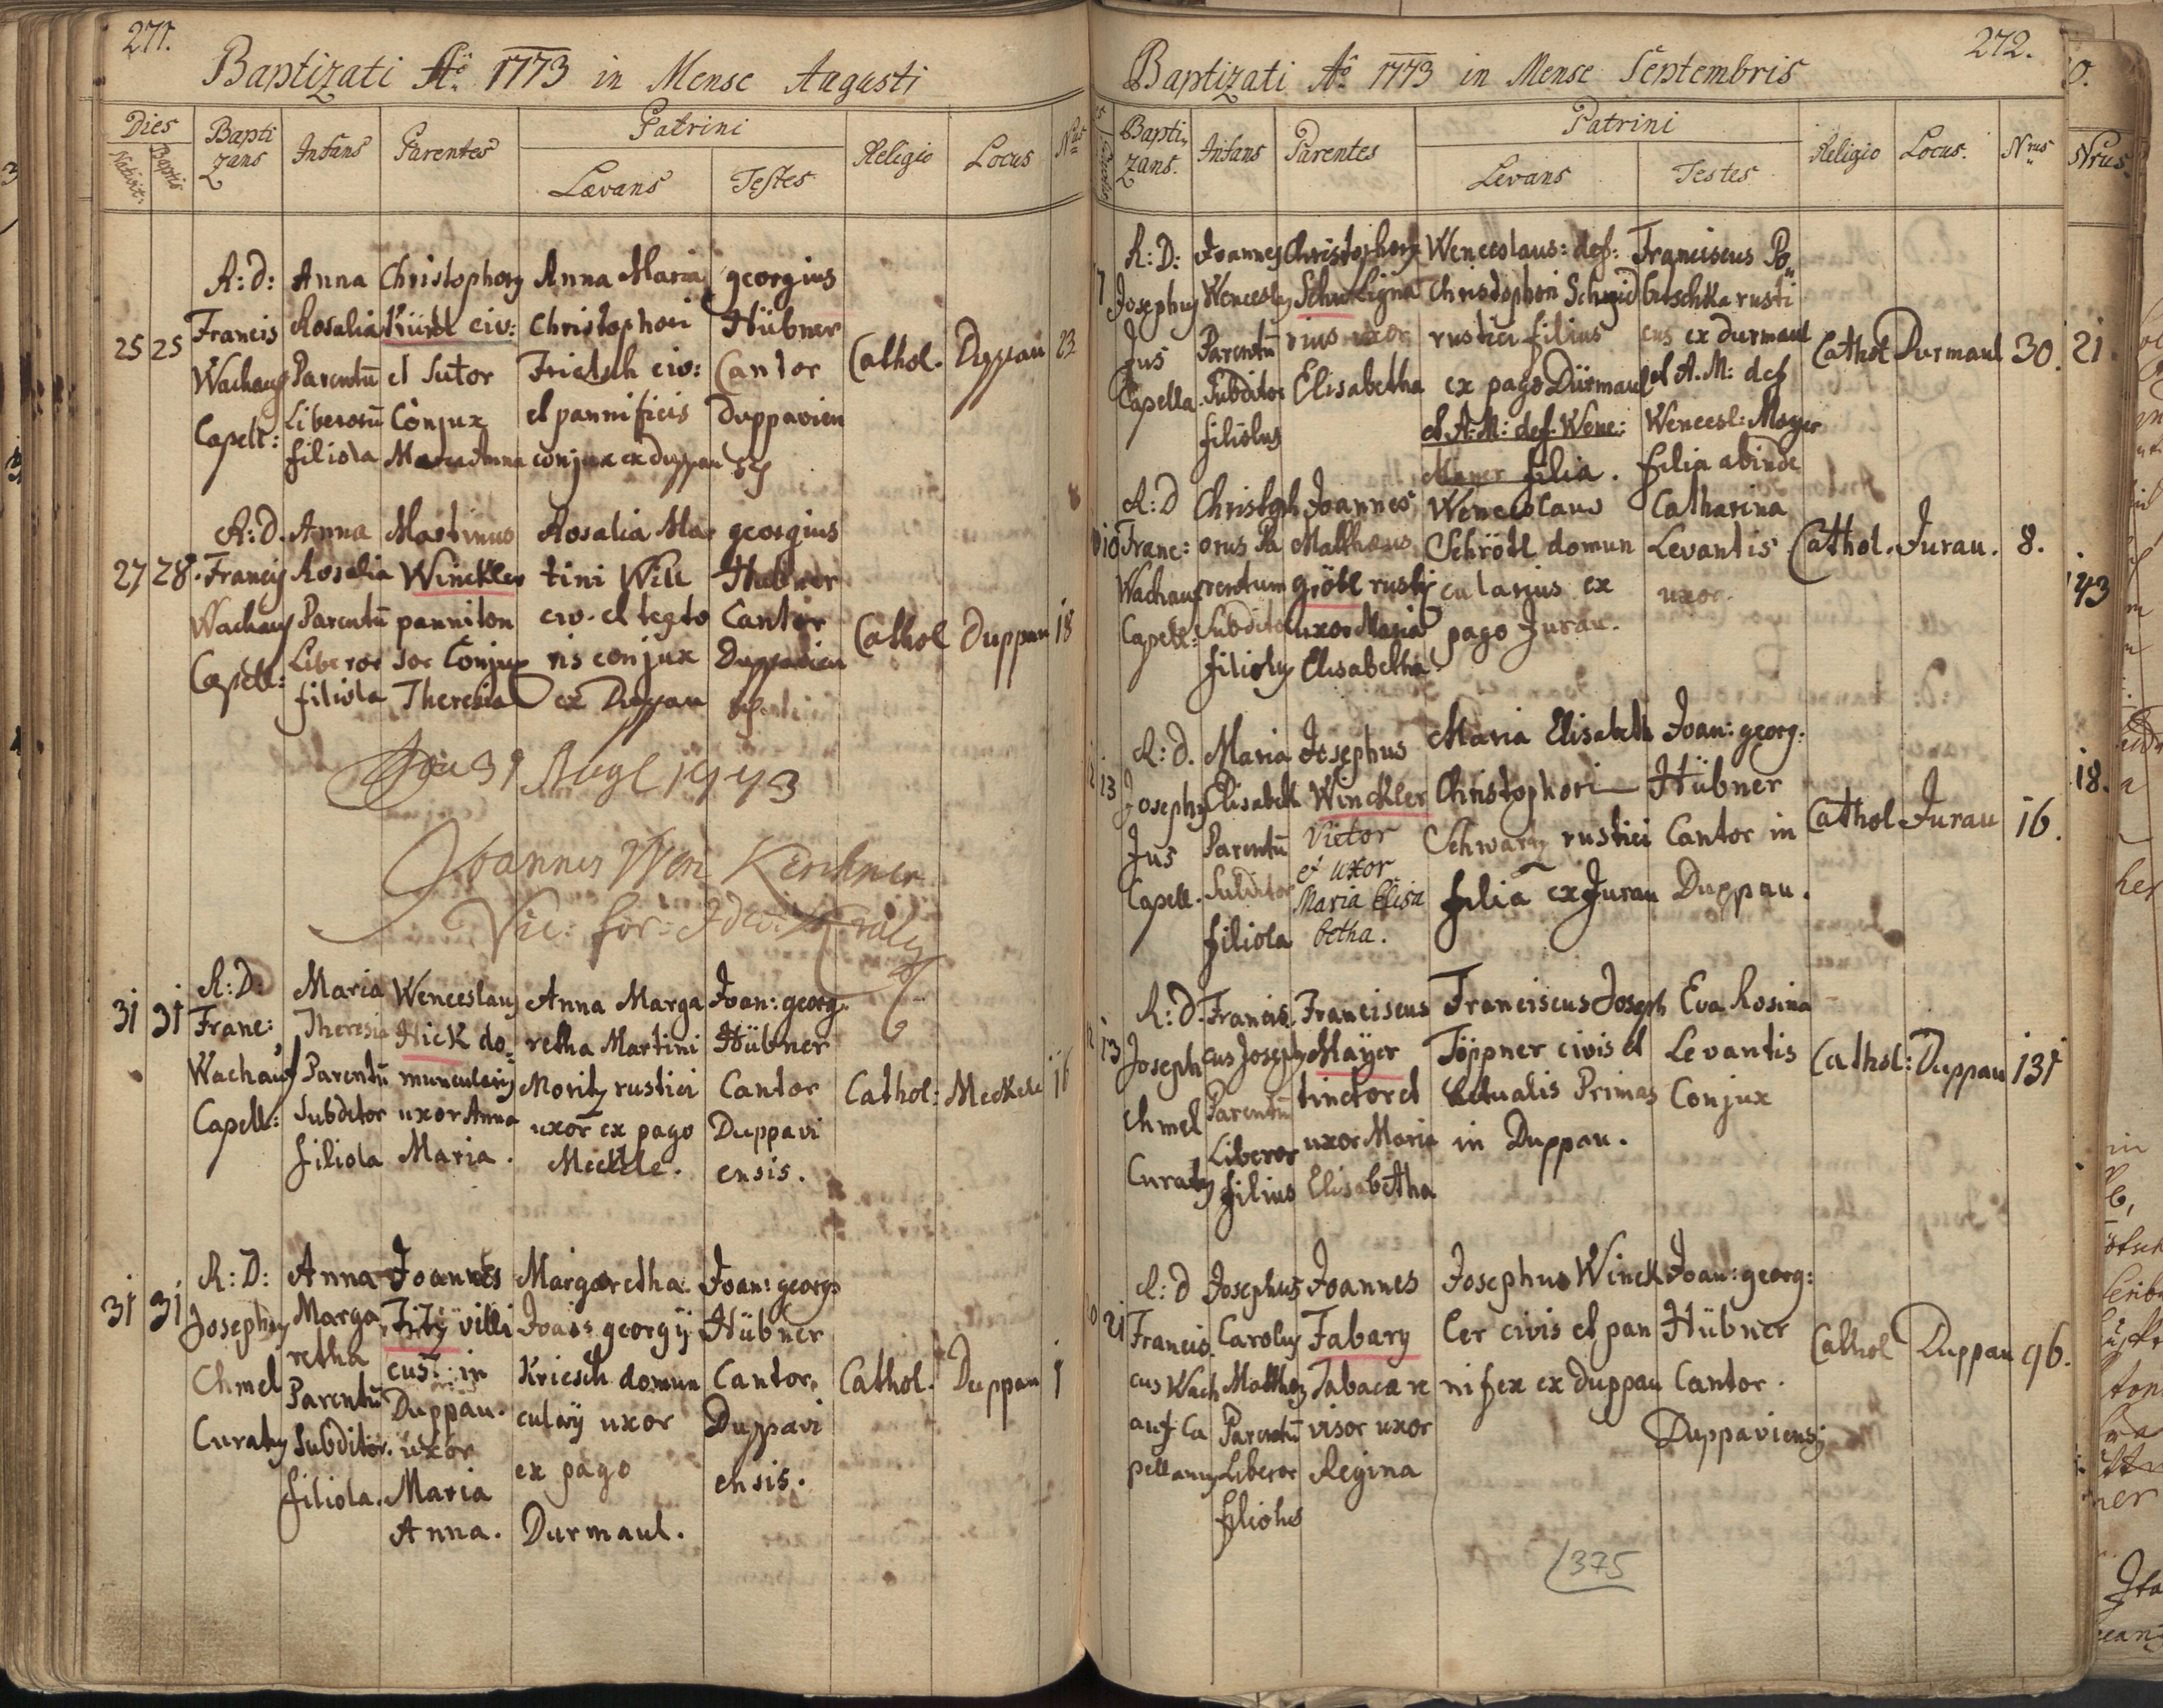 271.
Baptizati Aõ. 1773 in Mense Augusti
Dies
Nativit:
Baptis
Bapti
zans
Infans
Parentes
Patrini
Lævans
Testes
Religio
Locus
Nrus
25
25
R: d:
Francis
Wachauf
Capell:
Anna
Rosalia
Parentũ
Liberorũ
filiola
Christophorg
civ:
et Sutor
Conjux
Maria Anna
Anna Maria
Christophori
Frietsch civ:
et pannificis
conjux ex Duppau
georgius
Hübner
Cantor
Duppavien
Cathol.
Duppau
23
27
28.
R: d.
Francis
Wachauf
Capell:
Anna
Rosalia
Parentũ
Liberor
filiola
Martinus
Winckler
panniton
sor Conjux
Theresia
Rosalia Mar
tini Will
civ. et tegto
ris conjux
ex Duppau
georgius
Hübner
Cantor
Duppavien
Cathol
Duppau
18
31 1773
Joannes Wen Kerckner
Vic: for:
31
31
R: D:
Franc:
Wachauf
Capell:
Maria
Theresia
Parentũ
Subditor
filiola
Wenceslaus
Hick do
muncularis
uxor Anna
Maria.
Anna Marga
retha Martini
Moritz rustici
uxor ex pago
Meckle.
Joan: georg
Hübner
Cantor
Duppavi
ensis.
Cathol:
Meckele
16
31
31
R: D:
Joseph
Chmel
Curaty
Anna
Marga
retha
Parentũ
Subditor.
filiola.
Joannes
villi
cus: in
Duppau.
uxor
Maria
Anna.
Margaretha
Joãis georgÿ
Kriesch domun
culary uxor
ex pago
Durmaul.
Joan: georg
Hübner
Cantor.
Duppavi
ensis.
Cathol.
Duppau
1
272.
Baptizati Aõ 1773 in Mense Septembris
Bapti
zans.
Infans
Parentes
Patrini
Levans
Testes
Religio
Locus.
Nrus
7
R: D:
Josephy
Jus
Capella.
Joannes
Wencesly
Parentũ
Subditor
filiolus
Christophorg
rius uxor
Elisabetha
Wenceslaus: def:
Christophori Schmid
rustici filius
ex pago Dürmaul
et A: M: def. Wenc:
Mayer filia.
Franciscus Po
tutschka rusti
cus ex durmaul
et A. M: def
Wencesl: Mayer
filia abinde
Cathol
Durmaul
30.
10
R: D
Franc:
Wachauf
Capell:
Christoph
orus Pa
rentum
Subdito
filioly
Joannes
Matthæus
gröbl rusti
uxor Maria
Elisabetha
Wenceslaus
Schrötl domun
cularius ex
pago Jurau.
Catharina
Levantis
uxor.
Cathol.
Jurau.
8.
13
R: d.
Josephy
Jus
Capell.
Maria
Elisabeth
Parentũ
Subditor
filiola
Josephus
Winckler
Vietor
et uxor
Maria Elisa
betha.
Maria Elisabeth
Christophori
Schwartz rustici
filia ex Jurau
Joan: georg:
Hübner
Cantor in
Duppau.
Cathol
Jurau
16.
13
R: d.
Joseph
Chmel
Curaty
Francis
cus Josephy
Parentũ
Liberor
filius
Franciscus
Mayer
tinctor et
uxor Maria
Elisabetha
Franciscus Joseph
Töppner civis et
actualis Primas
in Duppau.
Eva Rosina
Levantis
Conjux
Cathol:
Duppau
131
21
R: d
Francis
cus Wach
auf Ca
pellanus
Josephus
Caroly
Matthey
Parentũ
Liberor
filiolus
Joannes
Fabary
Tabacæ re
visor uxor
Regina
Josephus Winck
ler civis et pan
nifex ex duppau
Joan: georg:
Hübner
Cantor.
Duppaviensis
Cathol
Duppau
96.
375
Nrus
21.
43
18.